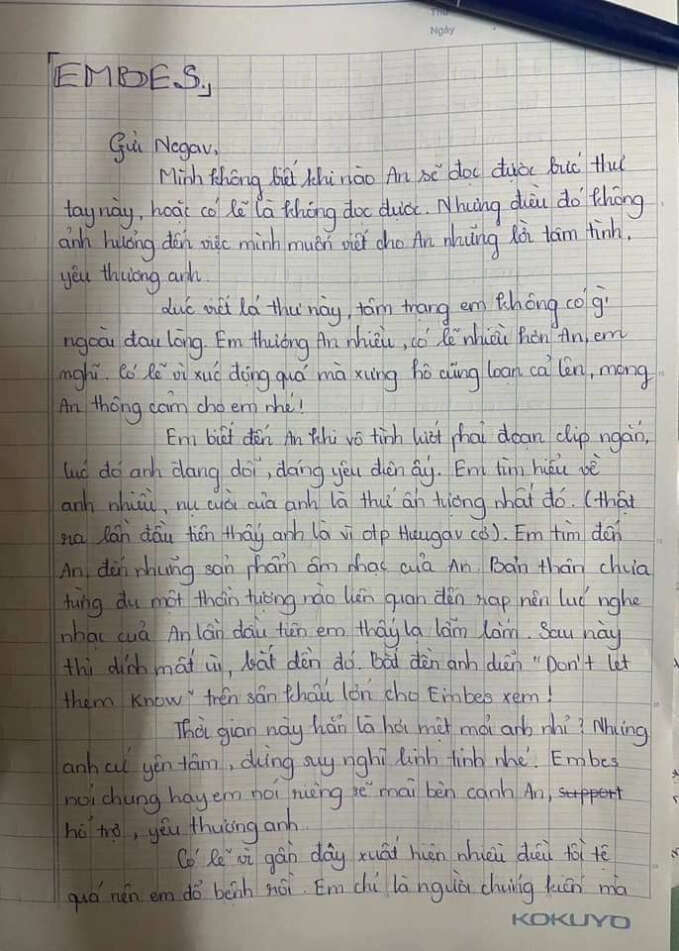 Thứ
Ngày
「EMBES.」
Gửi Negav,
Mình không biết khi nào An sẽ đọc được bức thư
tay này, hoặc có lẽ là không đọc được. Nhưng điều đó không
ảnh hưởng đến việc mình muốn viết cho An những lời tâm tình,
yêu thương anh.
Lúc viết lá thư này, tâm trạng em không có gì
ngoài đau lòng. Em thương An nhiều, có lẽ nhiều hơn An, em
nghĩ. Có lẽ vì xúc động quá mà xưng hô cũng loạn cả lên, mong
An thông cảm cho em nhé!
Em biết đến An khi vô tình lướt phải đoạn clip ngắn,
lúc đó anh đang dỗi, đáng yêu điên ấy. Em tìm hiểu về
anh nhiều, nụ cười của anh là thứ ấn tượng nhất đó. (thật
ra lần đầu tiên thấy anh là vì otp Hưugav cơ). Em tìm đến
An, đến những sản phẩm âm nhạc của An. Bản thân chưa
từng đu một thần tượng nào liên quan đến rap nên lúc nghe
nhạc của An lần đầu tiên em thấy lạ lắm lắm. Sau này
thì dính mất ùi, bắt đền đó. Bắt đền anh diễn "Don't let
them know" trên sân khấu lớn cho Embes xem!
Thời gian này hẳn là hơi mệt mỏi anh nhỉ? Nhưng
anh cứ yên tâm, đừng suy nghĩ linh tinh nhé. Embes
nói chung hay em nói riêng sẽ mãi bên cạnh An, support
hỗ trợ, yêu thương anh.
Có lẽ vì gần đây xuất hiện nhiều điều tồi tệ
quá nên em đổ bệnh rồi. Em chỉ là người chứng kiến mà
KOKUYO